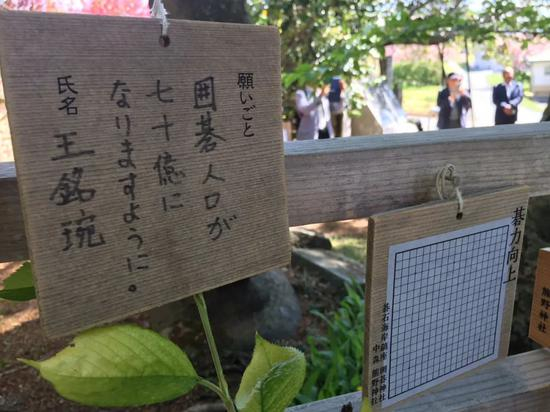 願いごと
囲碁人口が
七十億に
なりますように。
氏名 王銘琬
碁力向上
碁石海岸鎮座 囲碁神社
中森 熊野神社
熊野神社